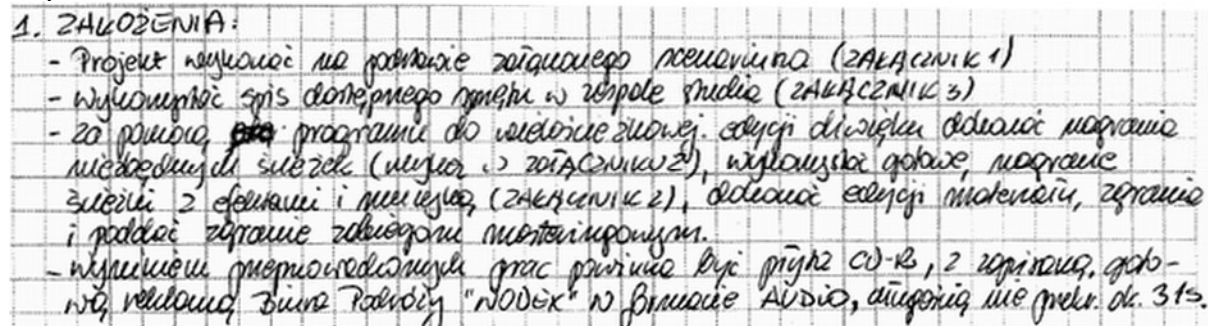 1. ZAŁOŻENIA:
- Projekt wykonać na podstawie załączonego scenariusza (ZAŁĄCZNIK 1)
- wykorzystać spis dostępnego sprzętu w zespole studia (ZAŁĄCZNIK 3)
- za pomocą programu do wielościeżkowej edycji dźwięku dokonać nagrania
niezbędnych ścieżek (wykaz w ZAŁĄCZNIKU 2), wykorzystać gotowe, nagrane
ścieżki z efektami i muzyką (ZAŁĄCZNIK 2), dokonać edycji materiału, zgrania
i poddać zgranie zabiegom masteringowym.
- wynikiem przeprowadzonych prac powinna być płyta CD-R, z zapisaną goto-
wą reklamą Biura Podróży "NODEK" w formacie AUDIO, długością nie przekr. ok. 31s.